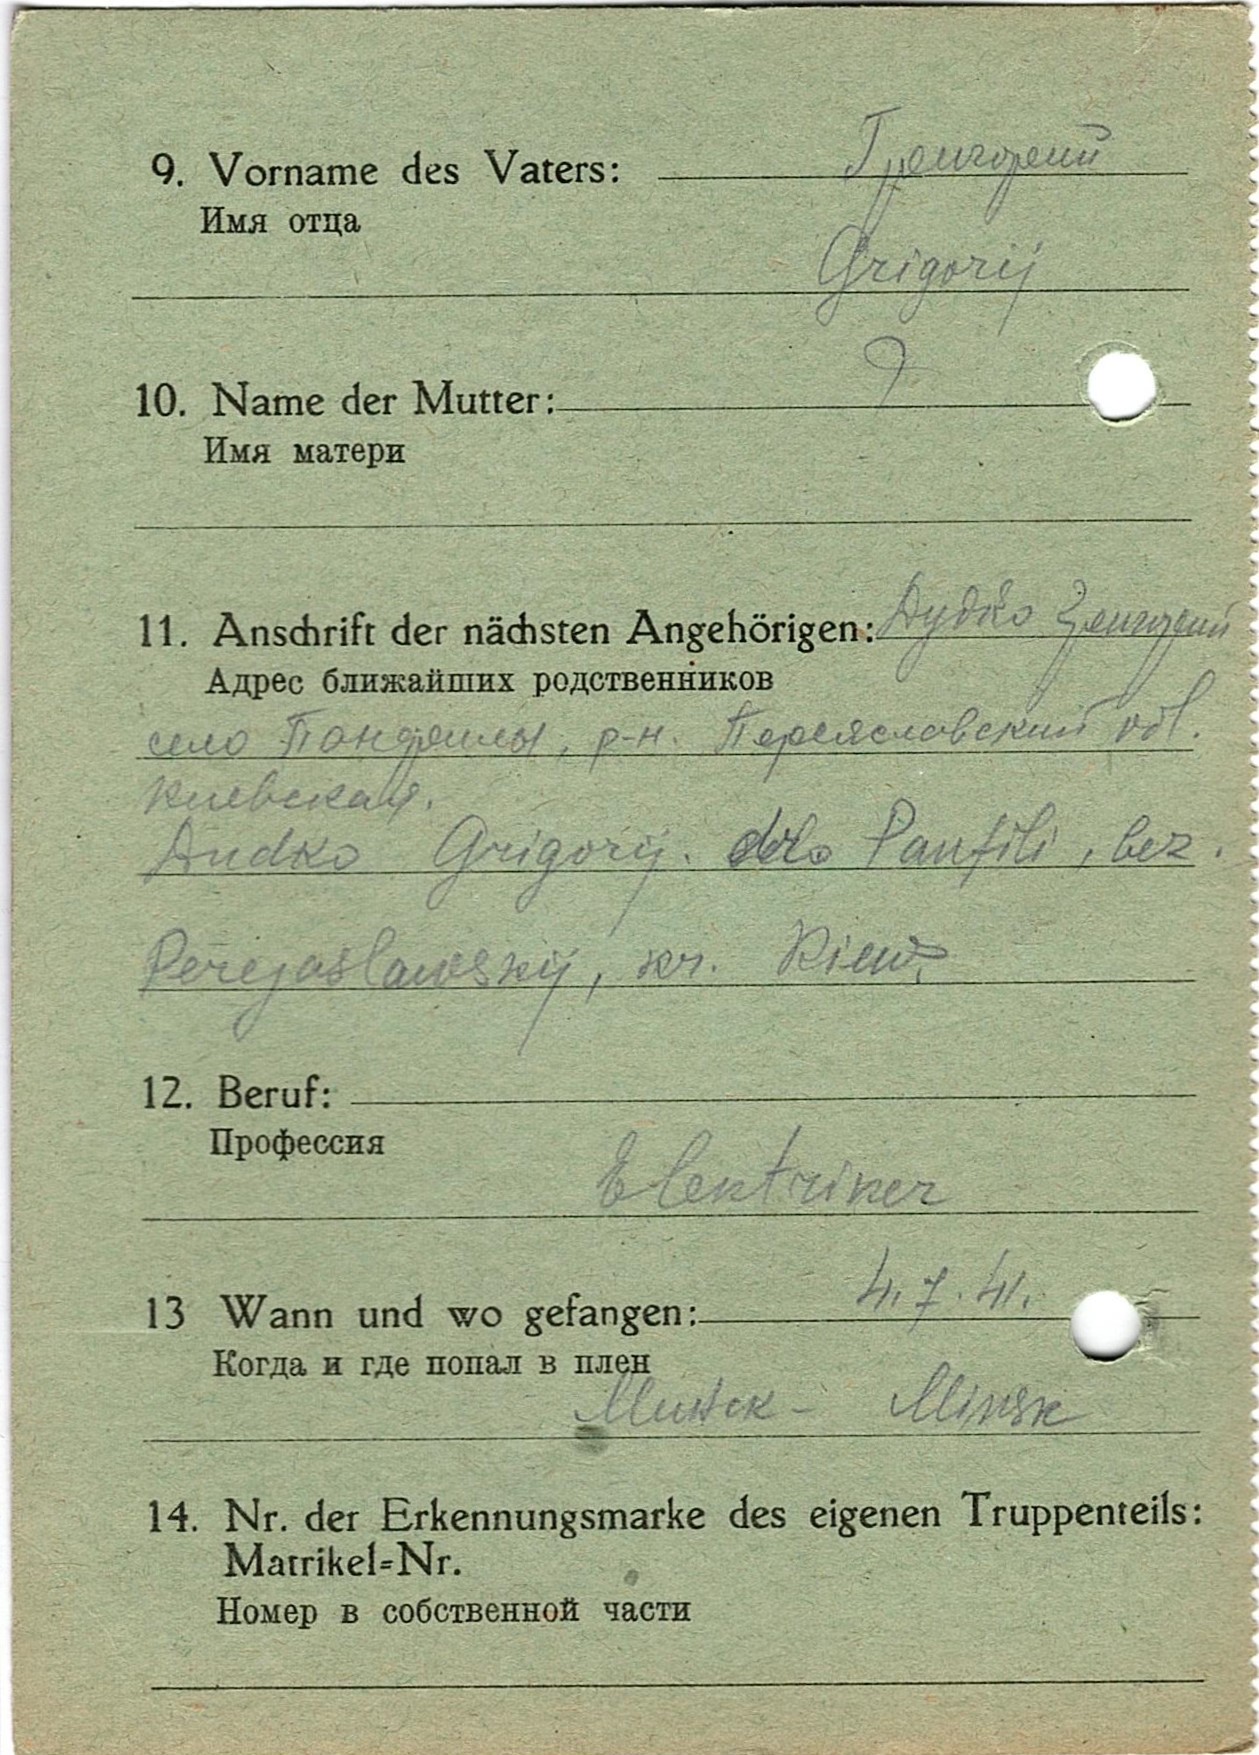 9. Vorname des Vaters: Григорий
Имя отца
Grigorij
?
10. Name der Mutter:
Имя матери
11. Anschrift der nächsten Angehörigen: Дудко Григорий
Адрес ближайших родственников
село р-н. Переяславский обл.
Киевская.
Dudko Grigorij. Panfili, bez.
Perejaslawskij, kr. Kiew.
12. Beruf:
Профессия
Elektriker
4.7.41.
13 Wann und wo gefangen:
Когда и где попал в плен
Минск - Minsk
14. Nr. der Erkennungsmarke des eigenen Truppenteils:
Matrikel=Nr.
Номер в собственной части